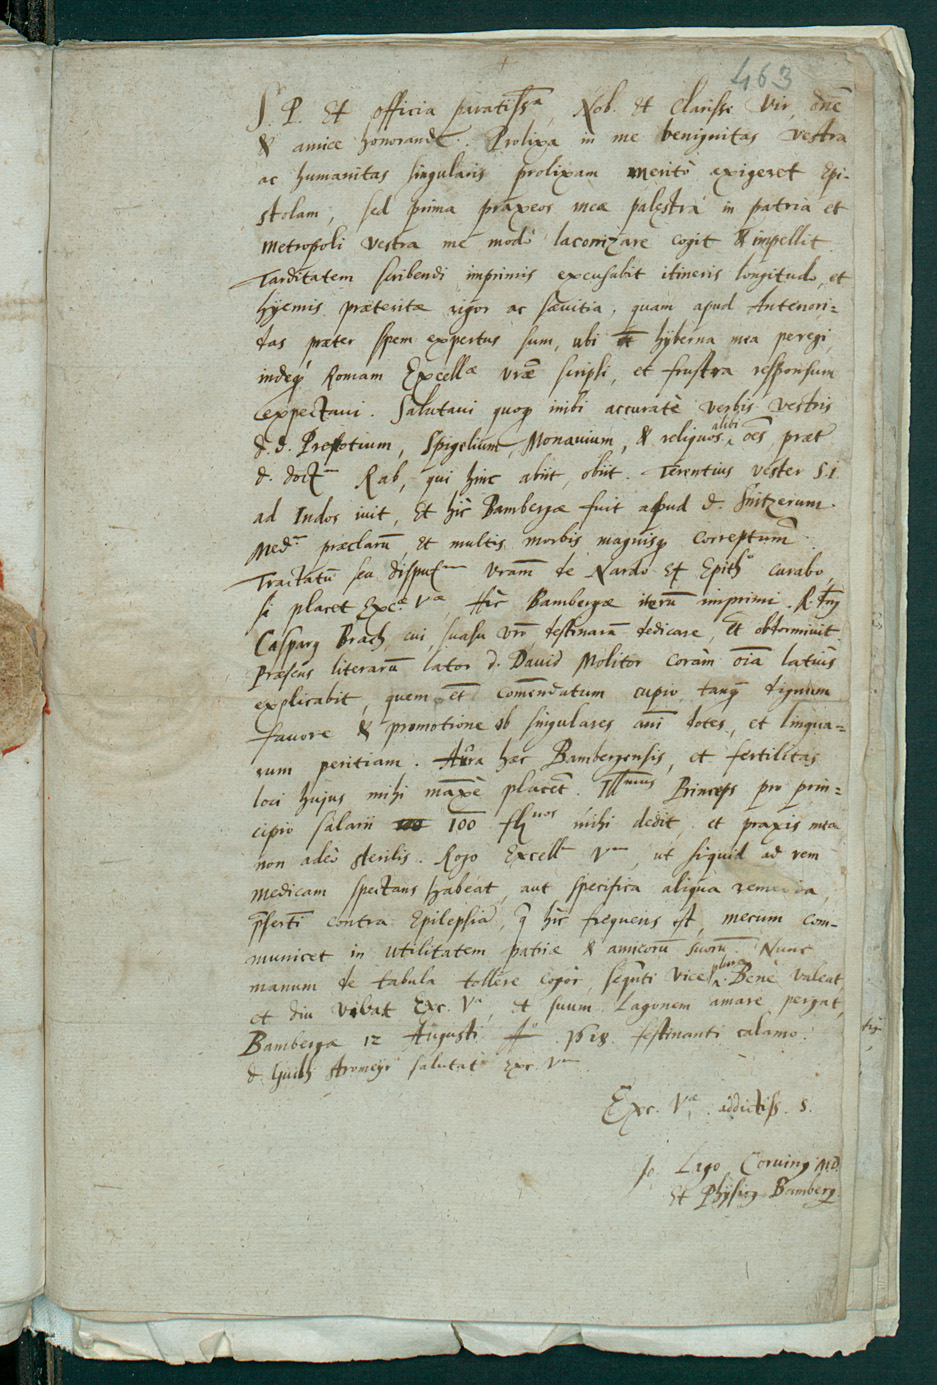 463
S. P. Et officia paratissa, Nob. et Clarisse Vir, dne
& amice honorande. Prolixa in me benignitas vestra
ac humanitas singularis prolixam meritò exigeret Epi-
stolam, sed prima praxeos mea palestra in patria et
metropoli vestra me modò laconizare cogit & impellit.
Tarditatem scribendi imprimis excusabit itineris longitudo, et
hyemis præteritæ rigor ac sævitia, quam apud Antenori-
das præter spem expertus sum, ubi et hyberna mea peregi,
indeq Romam Excellæ vræ scripsi, et frustra responsum
expectavi. Salutavi quoq inibi accuratè verbis vestris
d. d. Prevotium, Spigelium, Monavium, & reliquos alibi oēs, præt
d. doct Rab, qui hinc abiit, obiit. Terentius vester S.I
ad Indos ivit, Et hic Bambergæ fuit apud d. Snitzerum
Med. præclarū, et multis morbis magnisq correptum.
Tractatū seu disput vram de Nardo et Epith curabo,
si placet Exc. Væ, Hic Bambergæ iterū imprimi. R. dn
Casparg Brach, cui, suasu vro destinaram dedicare, Et obdormivit.
Præsens literarū lator d. David Molitor coràm oīa latius
explicabit, quem et comendatum cupio tanq dignum
favore & promotione ob singulares ani dotes, et lingua-
rum peritiam. Aura hæc Bambergensis, et fertilitas
loci hujus mihi maxè placet. Illmus Princeps pro prin-
cipio salarii 100 flnos mihi dedit, et praxis mea
non adeò sterilis. Rogo Excell V, ut siquid ad rem
medicam spectans habeat, aut specifica aliqua remedia,
pserti contra Epilepsiā, q hic frequens est, mecum com-
municet in utilitatem patriæ & amicorū suorū. Nunc
manum de tabula tollere cogor, sequti vice plura. Benè valeat,
et diu vivat Exc. V, et suum Lagonem amare pergat,
Bambergæ 12 Augusti Ao 1618 festinanti calamo.
d. salutat Exc. V
Exc. Væ addictiss. S.
Jo Lago Corving M.D.
Et Physicg Bamberg